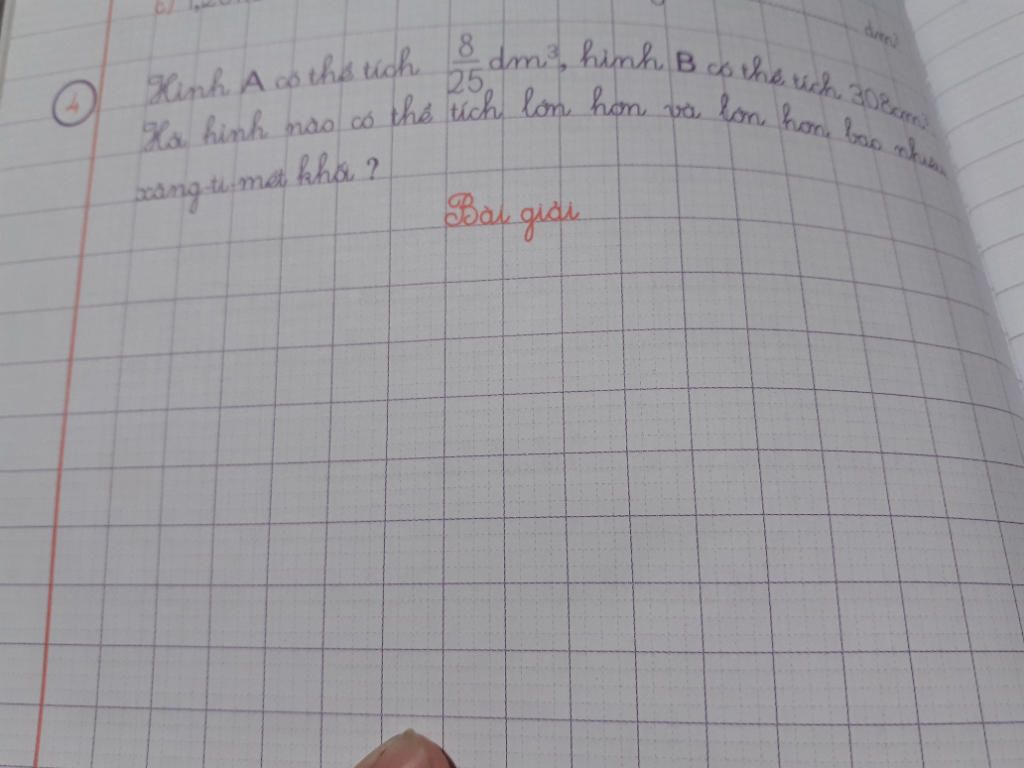 dm³
4 Hình A có thể tích 8/25 dm³, hình B có thể tích 308cm³
Hỏi hình nào có thể tích lớn hơn và lớn hơn bao nhiêu
xăng-ti-mét khối?
Bài giải